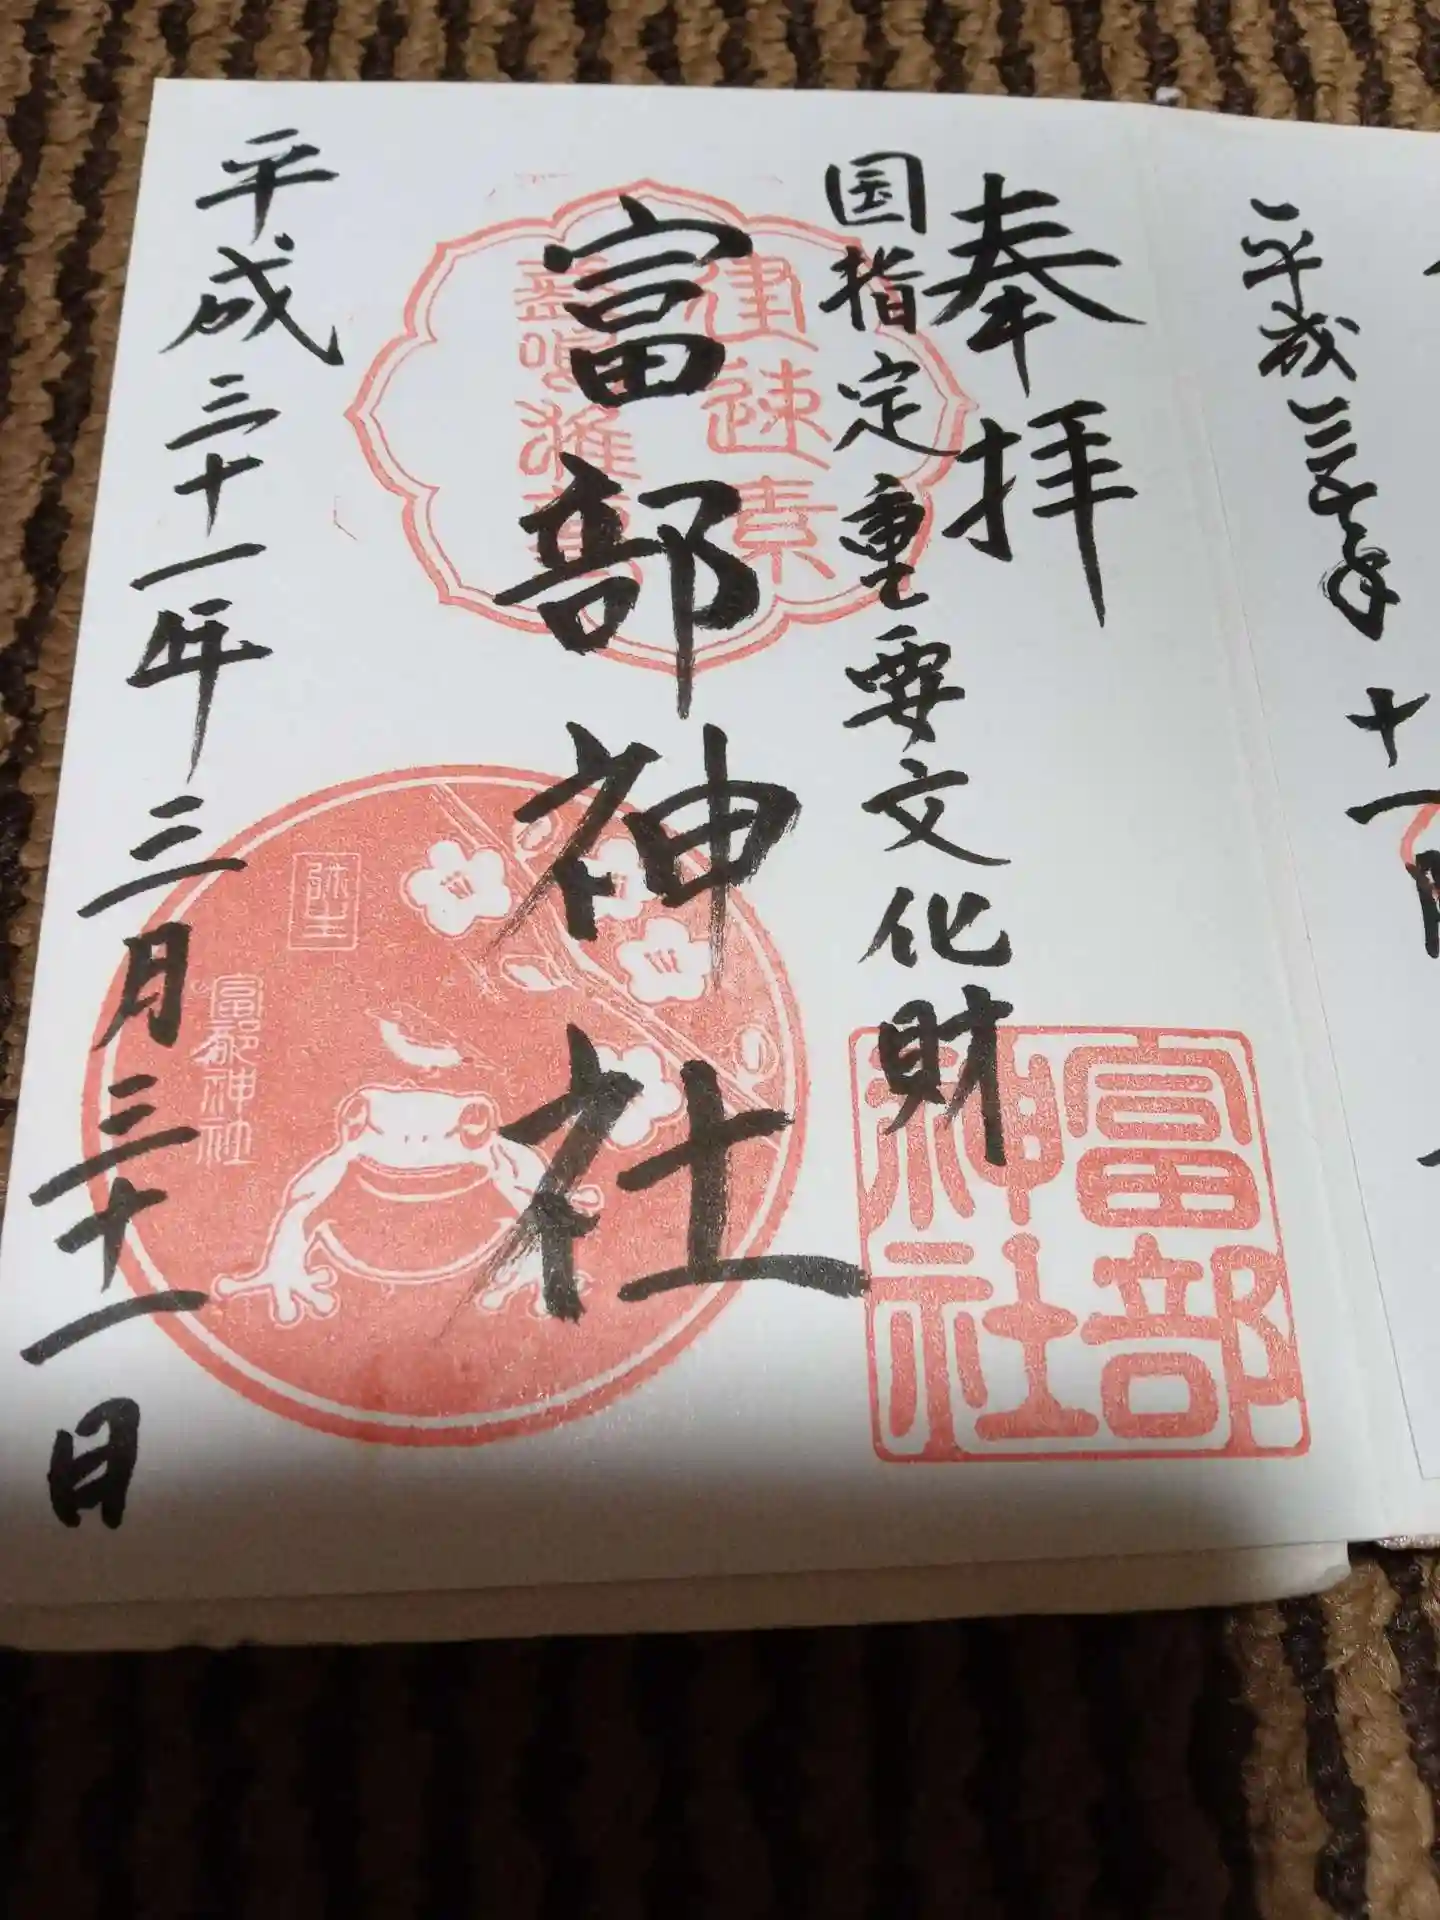 平成三十年十一月
奉拝
国指定重要文化財
富部神社
平成三十一年三月三十一日
建速素
盞嗚
富部
神社
弥生
富部神社